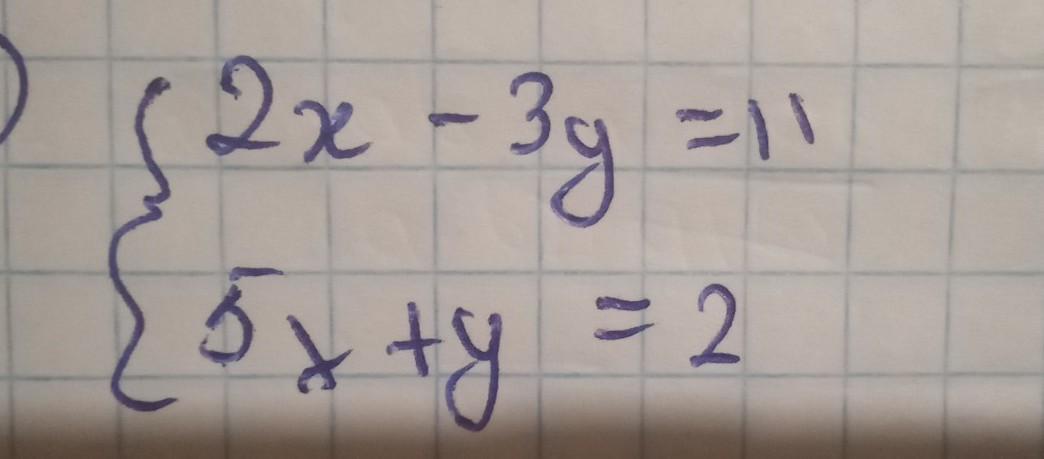 2x - 3y = 11
5x + y = 2